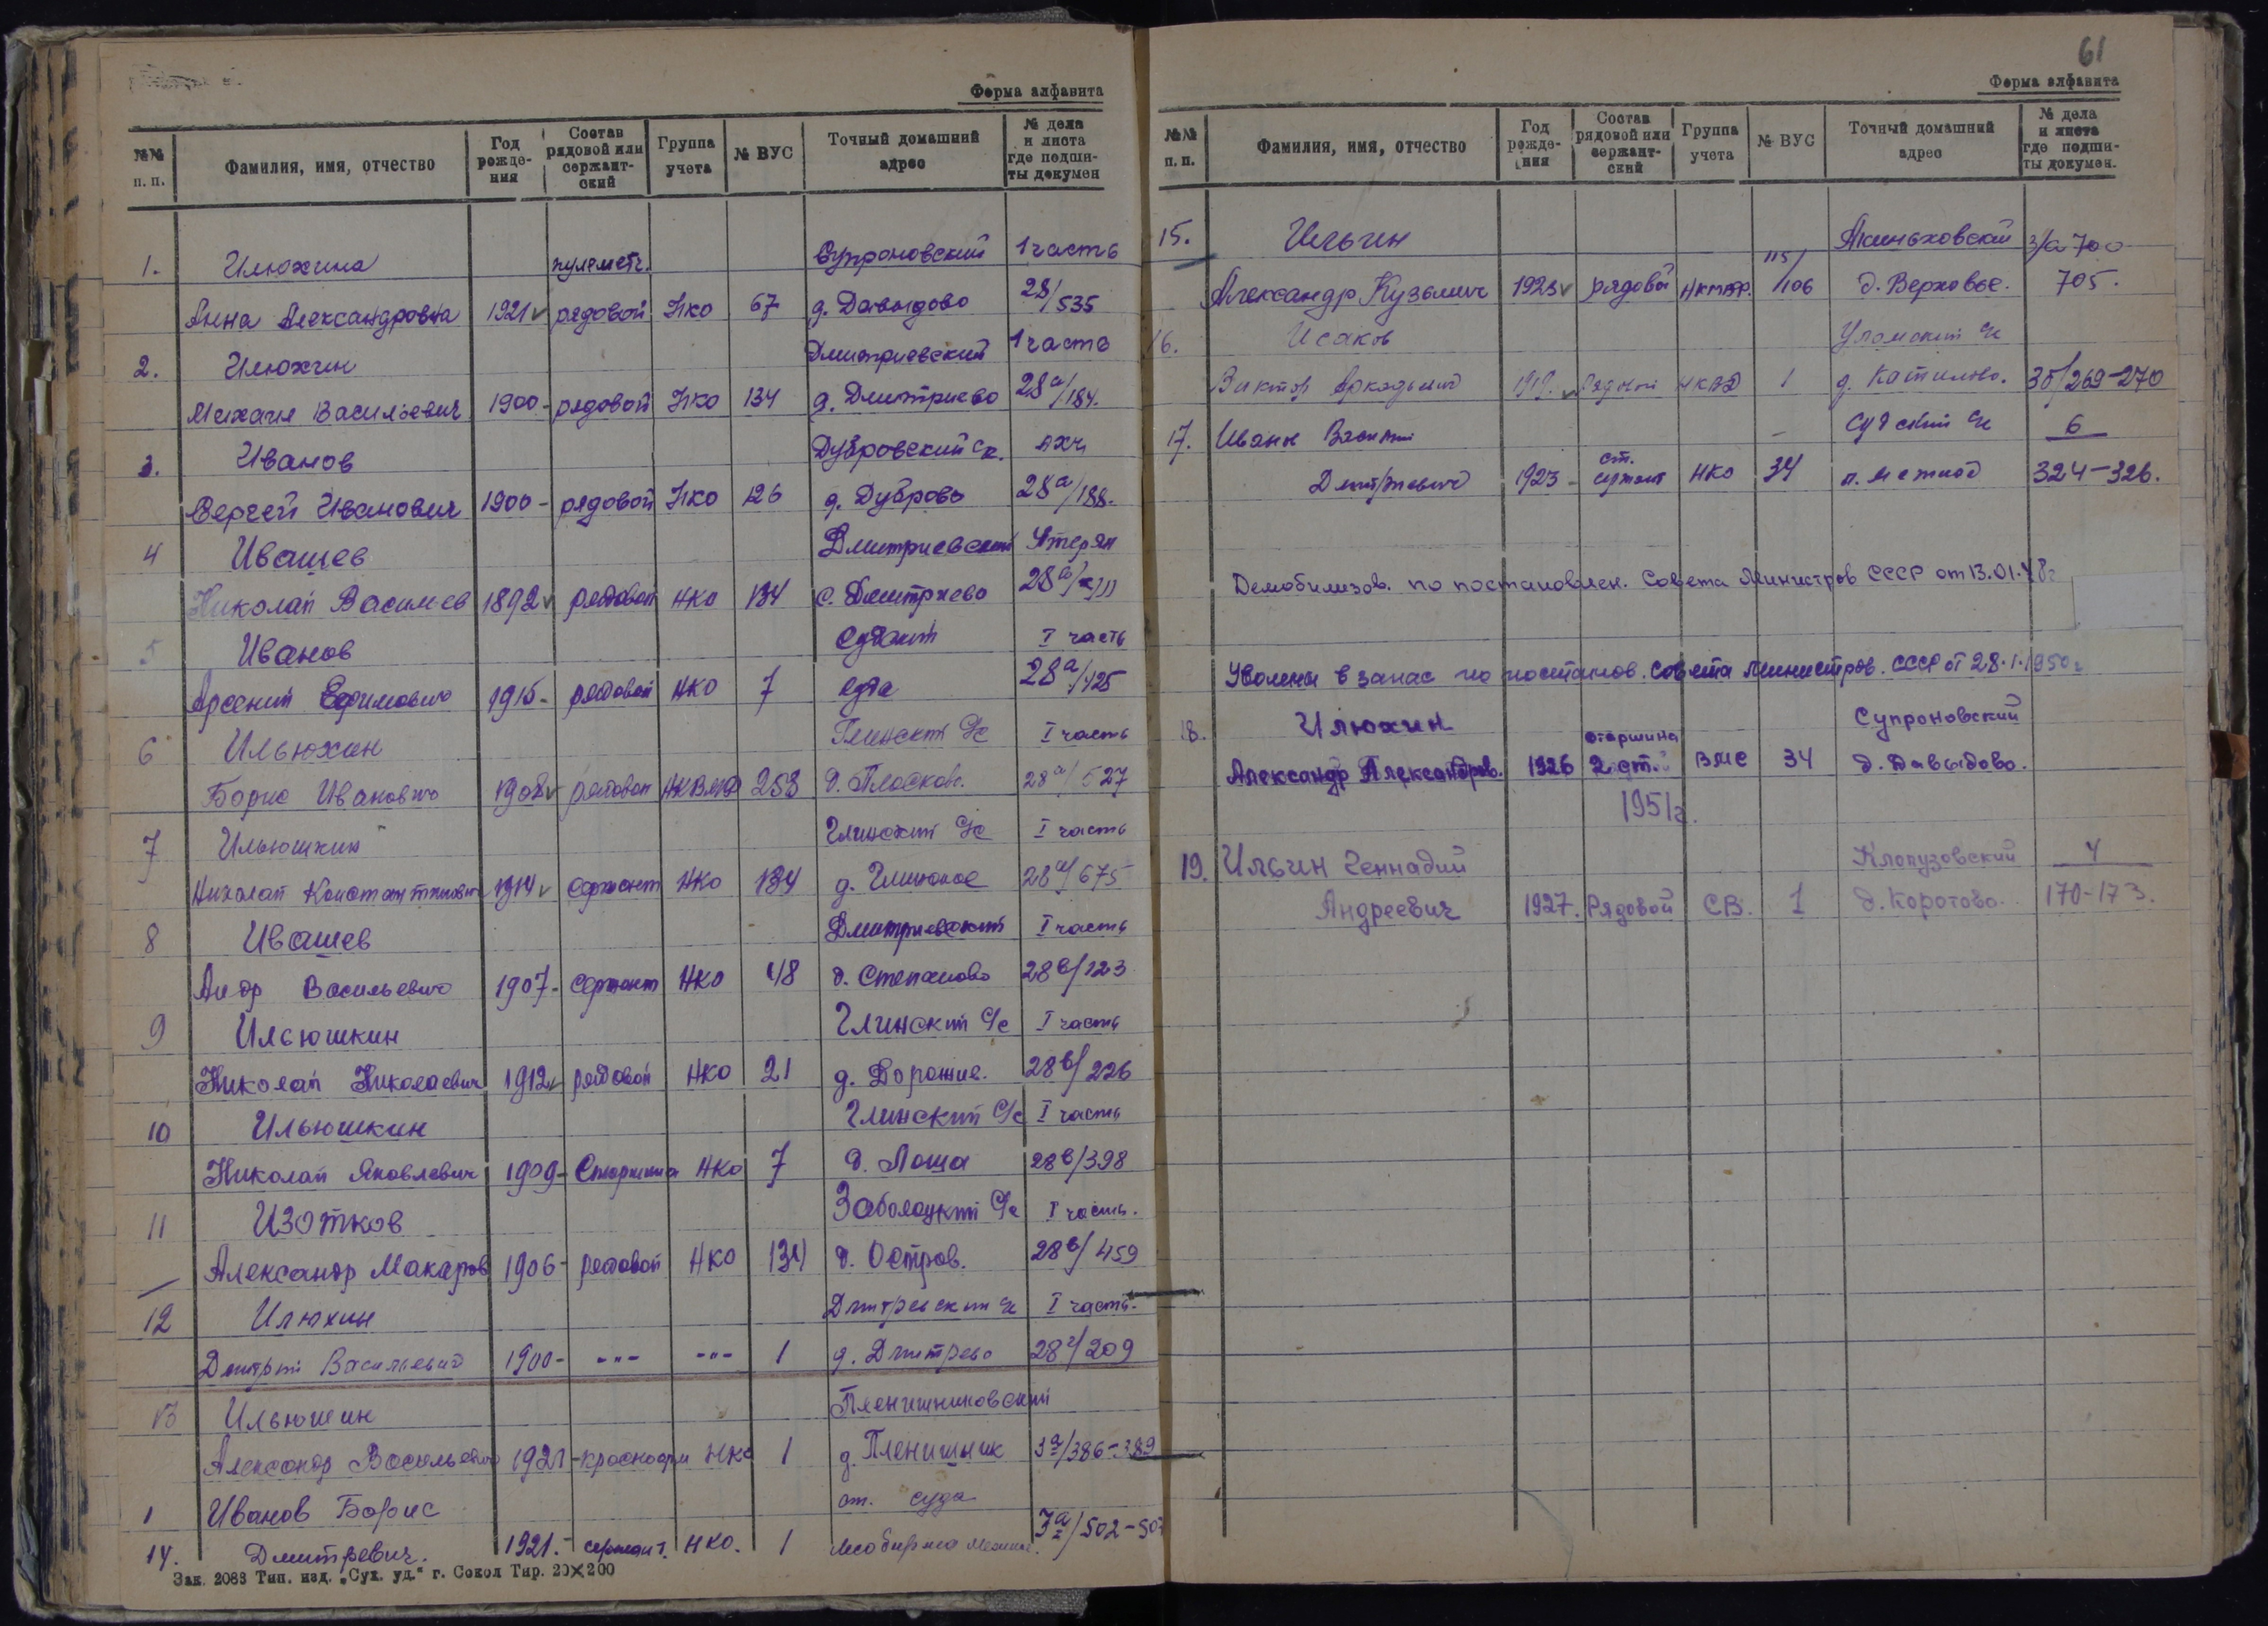 Форма алфавита
№№ п. п. Фамилия, имя, отчество Год рожде-ния Состав рядовой или сержант-ский Группа учета № ВУС Точный домашний адрес № дела и листа где подши-ты докумен
1. Илюхина пулеметч. Супроновский 1 часть
Анна Александровна 1921 рядовой НКО 67 д. Давыдово 28/535
2. Илюхин Дмитриевский 1 часть
Михаил Васильевич 1900 - рядовой НКО 134 д. Дмитриево 28а/184.
3. Иванов Дубровский с. АХЧ
Сергей Иванович 1900 - рядовой НКО 126 д. Дуброво 28а/188.
4 Ивашев Дмитриевский Утерян
Николай Васильев 1892 рядовой НКО 134 с. Дмитриево 28а/
5 Иванов Судский I часть
Арсений Ефимович 1915 - рядовой НКО 7 Суда 28а/425
6 Ильюхин Глинский с/с I часть
Борис Иванович 1908 рядовой НКВМФ 258 д. Плосков. 28а/527
7 Ильюшкин Глинский с/с I часть
Николай Константинович 1914 сержант НКО 134 д. Глинское 28а/675
8 Ивашев Дмитриевский I часть
Андр Васильевич 1907 - сержант НКО 48 д. Степаново 28в/123
9 Ильюшкин Глинский с/с I часть
Николай Николаевич 1912 рядовой НКО 21 д. Дорожив. 28в/226
10 Ильюшкин Глинский с/с I часть
Николай Яковлевич 1909 - Старшина НКО 7 д. Лоша 28в/398
11 Изотков Заболоцкий с/с I часть.
Александр Макаров 1906 - рядовой НКО 134 д. Остров. 28в/459
12 Илюхин Дмитревский с/с I часть.
Дмитрий Васильевич 1900 - -"- -"- 1 д. Дмитрево 28г/209
13 Ильюшин Пленишниковский
Александр Васильевич 1921 - красноарм НКО 1 д. Пленишник 3а/386-389
1 Иванов Борис ст. Суда
14. Дмитревич. 1921. - сержант. НКО. 1 3а/502-507
Зак. 2088 Тип. изд. „Сух. уд." г. Сокол Тир. 20×200
61
Форма алфавита
№№ п. п. Фамилия, имя, отчество Год рожде-ния Состав рядовой или сержант-ский Группа учета № ВУС Точный домашний адрес № дела и листа где подши-ты докумен.
15. Ильин Акиньховский 3/а 700
Александр Кузьмич 1923 рядовой НКМФ. 115/106 д. Верховье. 705.
16. Исаков Уломский с/с
Виктор Аркадьевич 1919. рядовой НКВД 1 д. Катилово. 3б/269-270
17. Иванов Василий - Судский с/с 6
Дмитриевич 1923 - ст. сержант НКО 34 п. Межной 324-326.
Демобилизов. по постановлен. Совета Министров СССР от 13.01.48г
Уволены в запас по постанов. Совета Министров. СССР от 28.1.1950г
18. Илюхин старшина Супроновский
Александр Александров. 1926 2 ст. ВМС 34 д. Давыдово.
1951г.
19. Ильин Геннадий Клопузовский 4
Андреевич 1927. Рядовой СВ. 1 д. Коротово. 170-173.